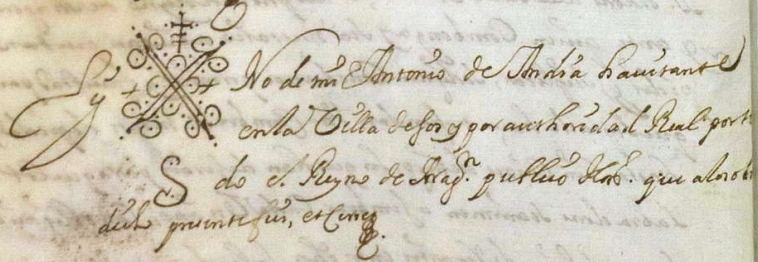 Sig No de mi Antonio de Andia havitante
en la Villa de sos y por authoridad Real por to
do el Reyno de Arag.n publico Not.º que a lo sobre
dicho presente fui, et Cerre